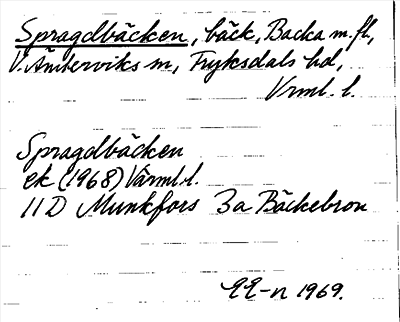 Spragdbäcken, bäck, Backa m. fl,
V. Ämterviks sn, Fryksdals hd,
Vrml. l.
Spragdbäcken
ek (1968) Värml. l.
11 D Munkfors 3a Bäckebron
1969.